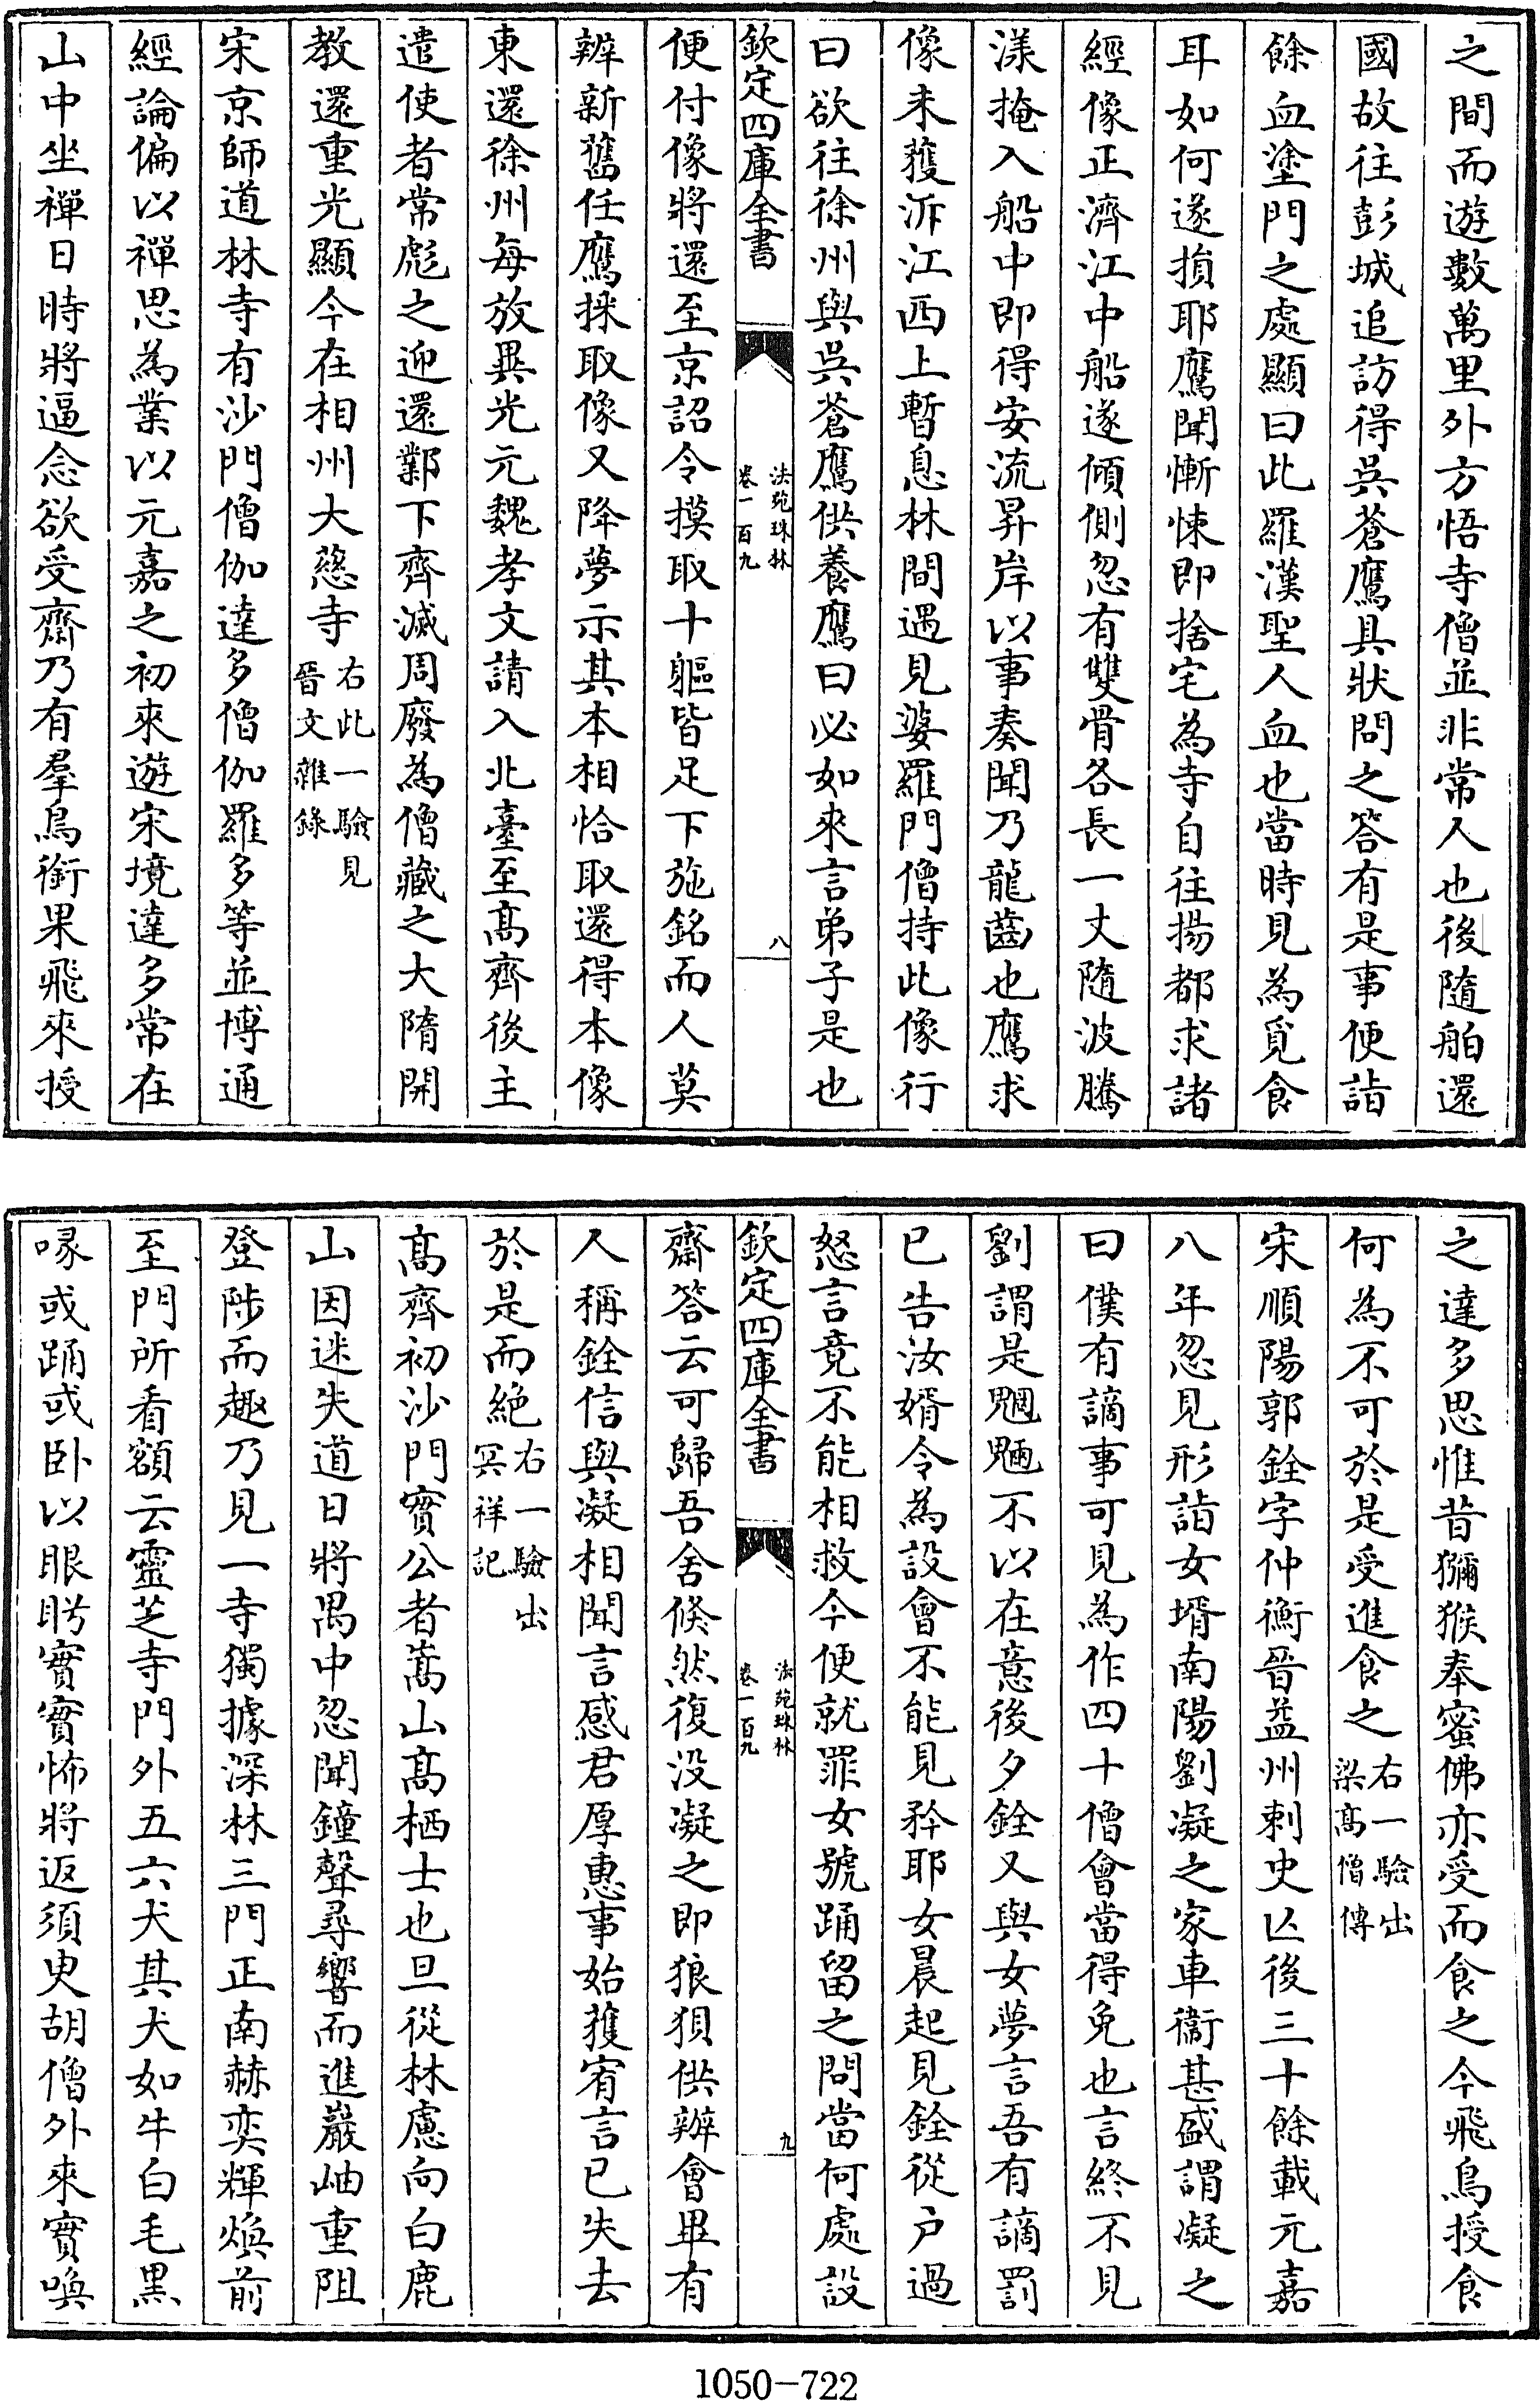 之間而遊數萬里外方悟寺僧並非常人也後隨舶還
國故往彭城追訪得吳蒼鷹具狀問之答有是事便詣
餘血塗門之處顯曰此羅漢聖人血也當時見為覓食
耳如何遂損耶鷹聞慚悚即捨宅為寺自往揚都求諸
經像正濟江中船遂傾側忽有雙骨各長一丈隨波騰
漾掩入船中即得安流昇岸以事奏聞乃龍齒也鷹求
像未獲泝江西上暫息林間遇見婆羅門僧持此像行
曰欲往徐州與吳蒼鷹供養鷹曰必如來言弟子是也
欽定四庫全書
法苑珠林
卷一百九
八
便付像將還至京詔令摸取十軀皆足下施銘而人莫
辨新舊任鷹採取像又降夢示其本相恰取還得本像
東還徐州每放異光元魏孝文請入北臺至高齊後主
遣使者常彪之迎還鄴下齊滅周廢為僧藏之大隋開
教還重光顯今在相州大慈寺
右此一驗見
晉文雜錄
宋京師道林寺有沙門僧伽達多僧伽羅多等並博通
經論偏以禪思為業以元嘉之初來遊宋境達多常在
山中坐禪日時將逼念欲受齋乃有羣鳥銜果飛來授
之達多思惟昔獼猴奉蜜佛亦受而食之今飛鳥授食
何為不可於是受進食之
右一驗出
梁高僧傳
宋順陽郭銓字仲衡晉益州刺史亾後三十餘載元嘉
八年忽見形詣女壻南陽劉凝之家車衞甚盛謂凝之
曰僕有謫事可見為作四十僧會當得免也言終不見
劉謂是魍魎不以在意後夕銓又與女夢言吾有謫罰
已告汝婿令為設會不能見矜耶女晨起見銓從户過
怒言竟不能相救今便就罪女號踊留之問當何處設
欽定四庫全書
法苑珠林
卷一百九
九
齋答云可歸吾舍倐然復没凝之即狼狽供辦會畢有
人稱銓信與凝相聞言感君厚惠事始獲宥言已失去
於是而絶
右一驗出
冥祥記
高齊初沙門實公者嵩山高栖士也旦從林慮向白鹿
山因迷失道日將禺中忽聞鐘聲尋響而進巖岫重阻
登陟而趣乃見一寺獨據深林三門正南赫奕輝煥前
至門所看額云靈芝寺門外五六犬其犬如牛白毛黑
喙或踊或卧以眼盻實實怖將返須臾胡僧外來實喚
1050-722